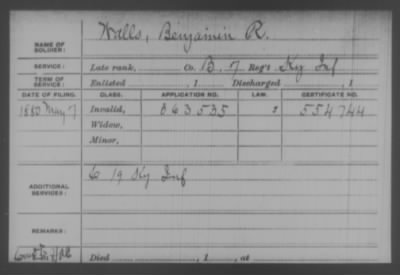 Walls, Benjamin R.
NAME OF SOLDIER:
SERVICE: Late rank, Co. B, 7 Reg't Ky Inf
TERM OF SERVICE: Enlisted , 1 Discharged , 1
DATE OF FILING. CLASS. APPLICATION NO. LAW. CERTIFICATE NO.
May 7 Invalid, 863535 554744
Widow,
Minor,
C 19 Ky Inf
ADDITIONAL SERVICES:
REMARKS:
Died , 1 , at